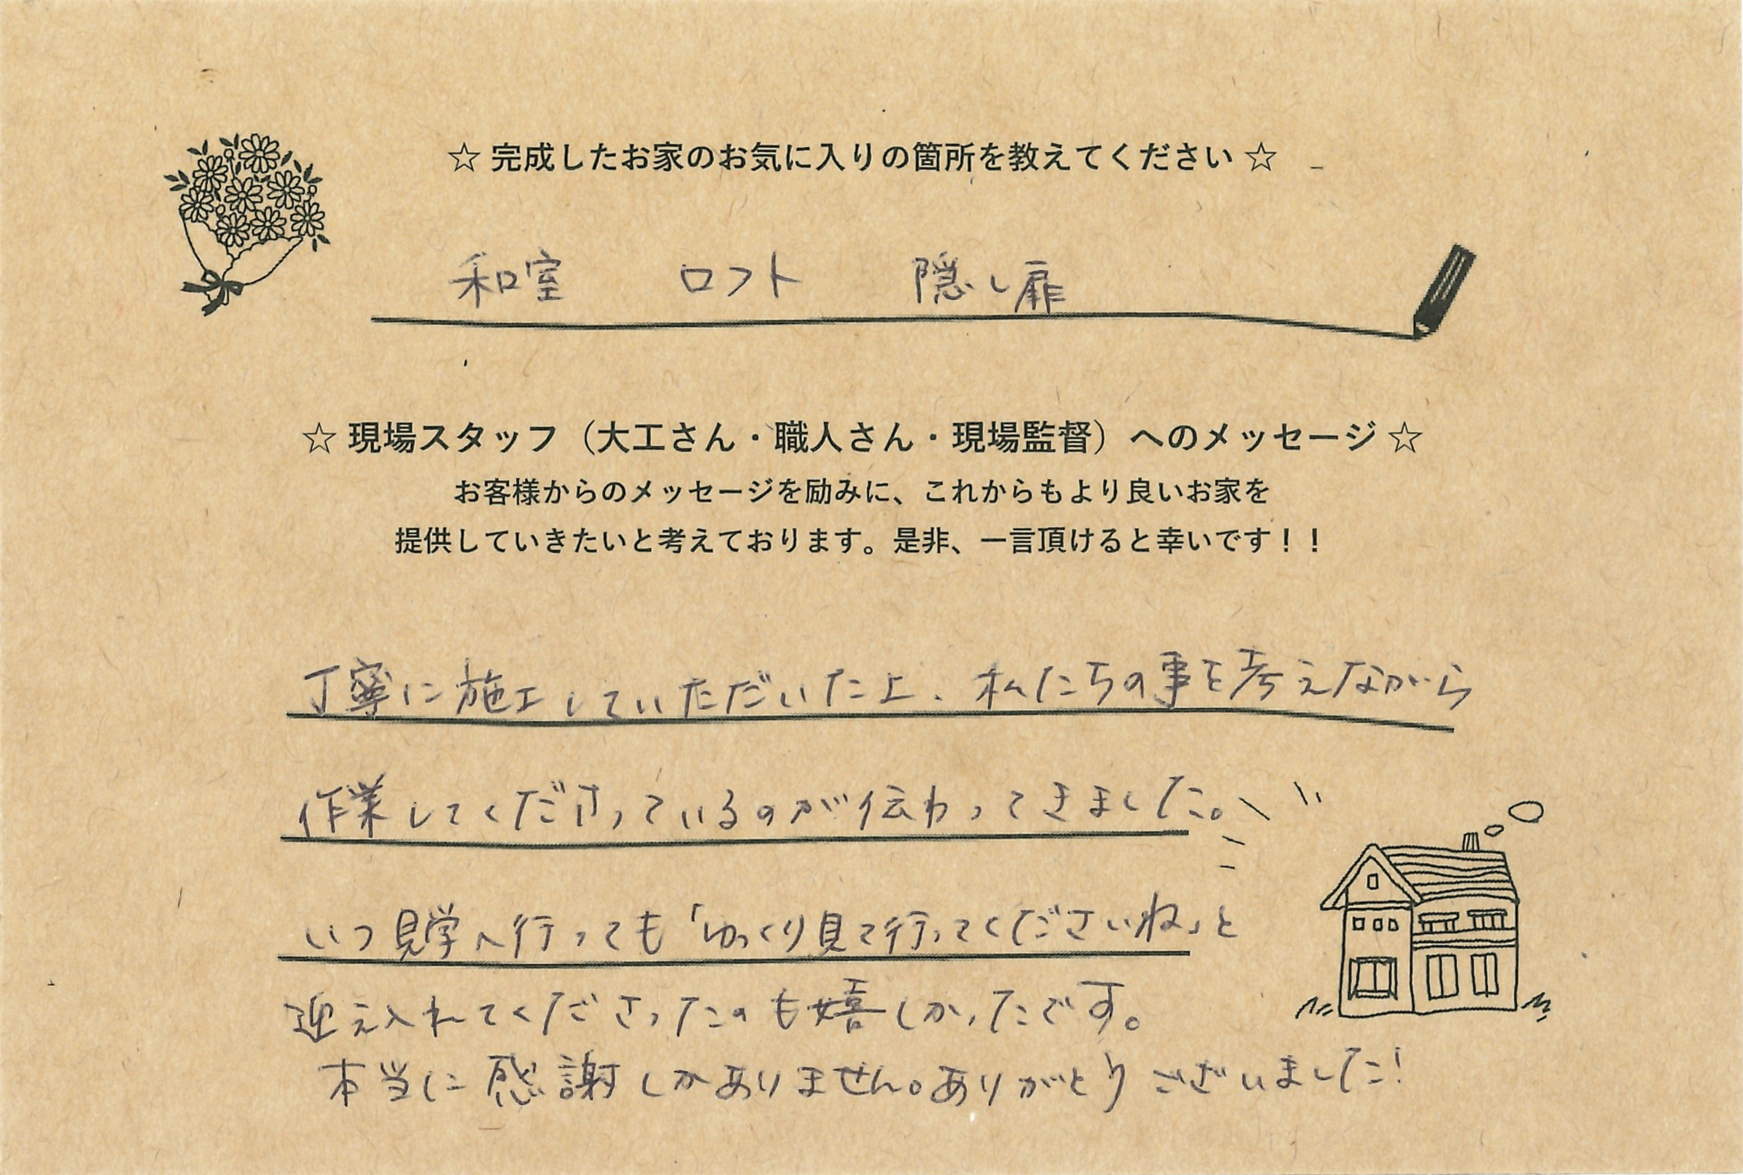 ☆ 完成したお家のお気に入りの箇所を教えてください ☆
和室 ロフト 隠し扉
☆ 現場スタッフ（大工さん・職人さん・現場監督）へのメッセージ ☆
お客様からのメッセージを励みに、これからもより良いお家を
提供していきたいと考えております。是非、一言頂けると幸いです！！
丁寧に施工していただいた上、私たちの事を考えながら
作業してくださっているのが伝わってきました。
いつ見学へ行っても「ゆっくり見て行ってくださいね」と
迎え入れてくださったのも嬉しかったです。
本当に感謝しかありません。ありがとうございました！